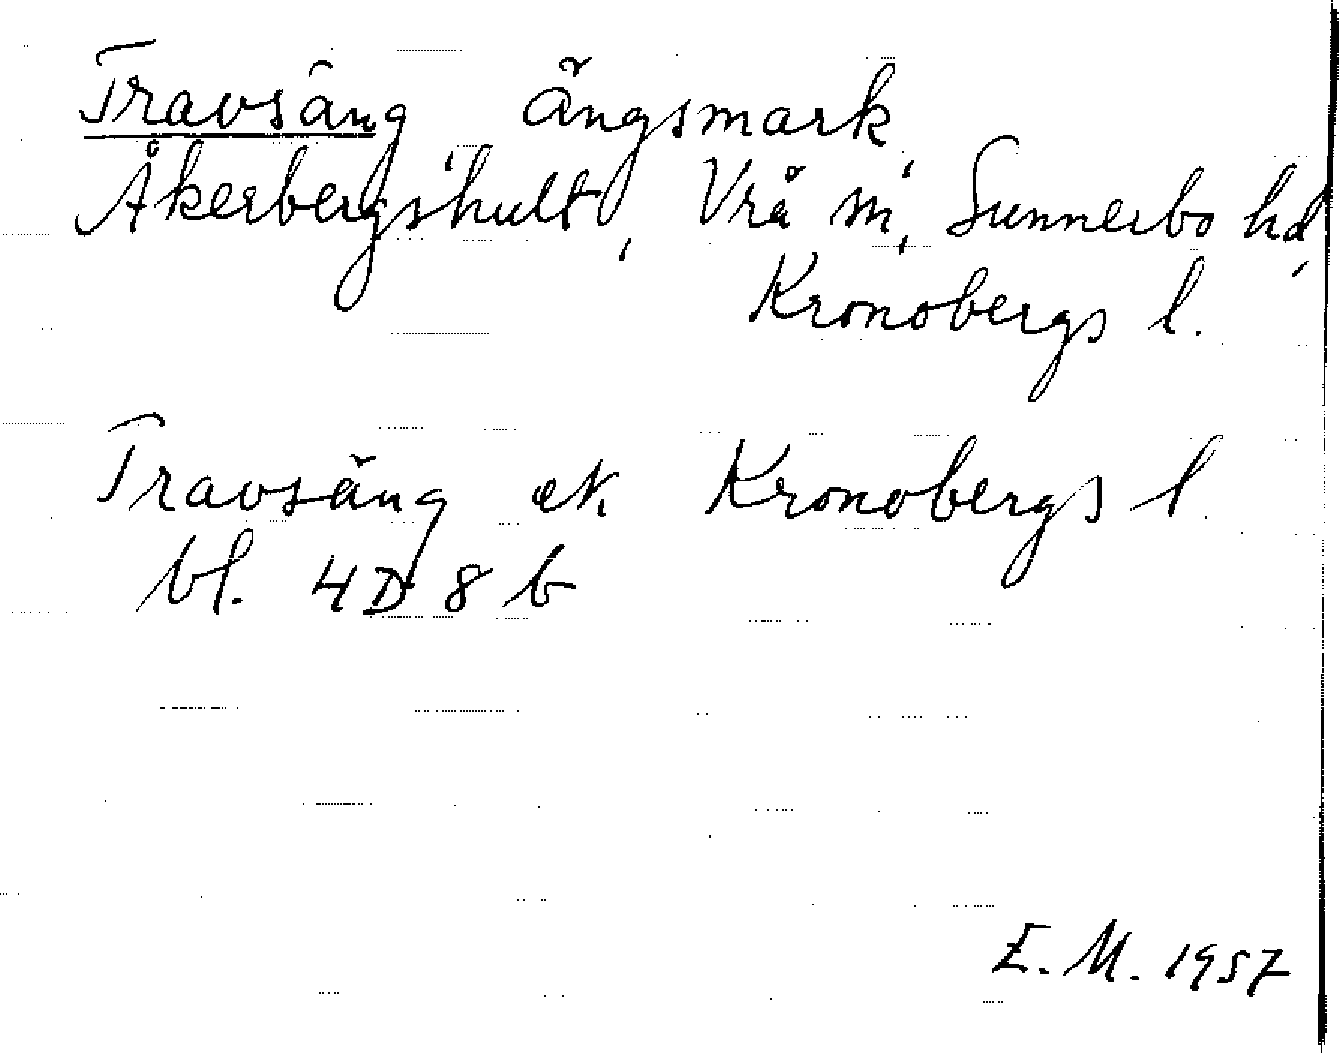 Travsäng ängsmark
Åkerbergshult, Vrå sn, Sunnerbo hd,
Kronobergs l.
Travsäng ek. Kronobergs l.
bl. 4D 8b
E. M. 1957